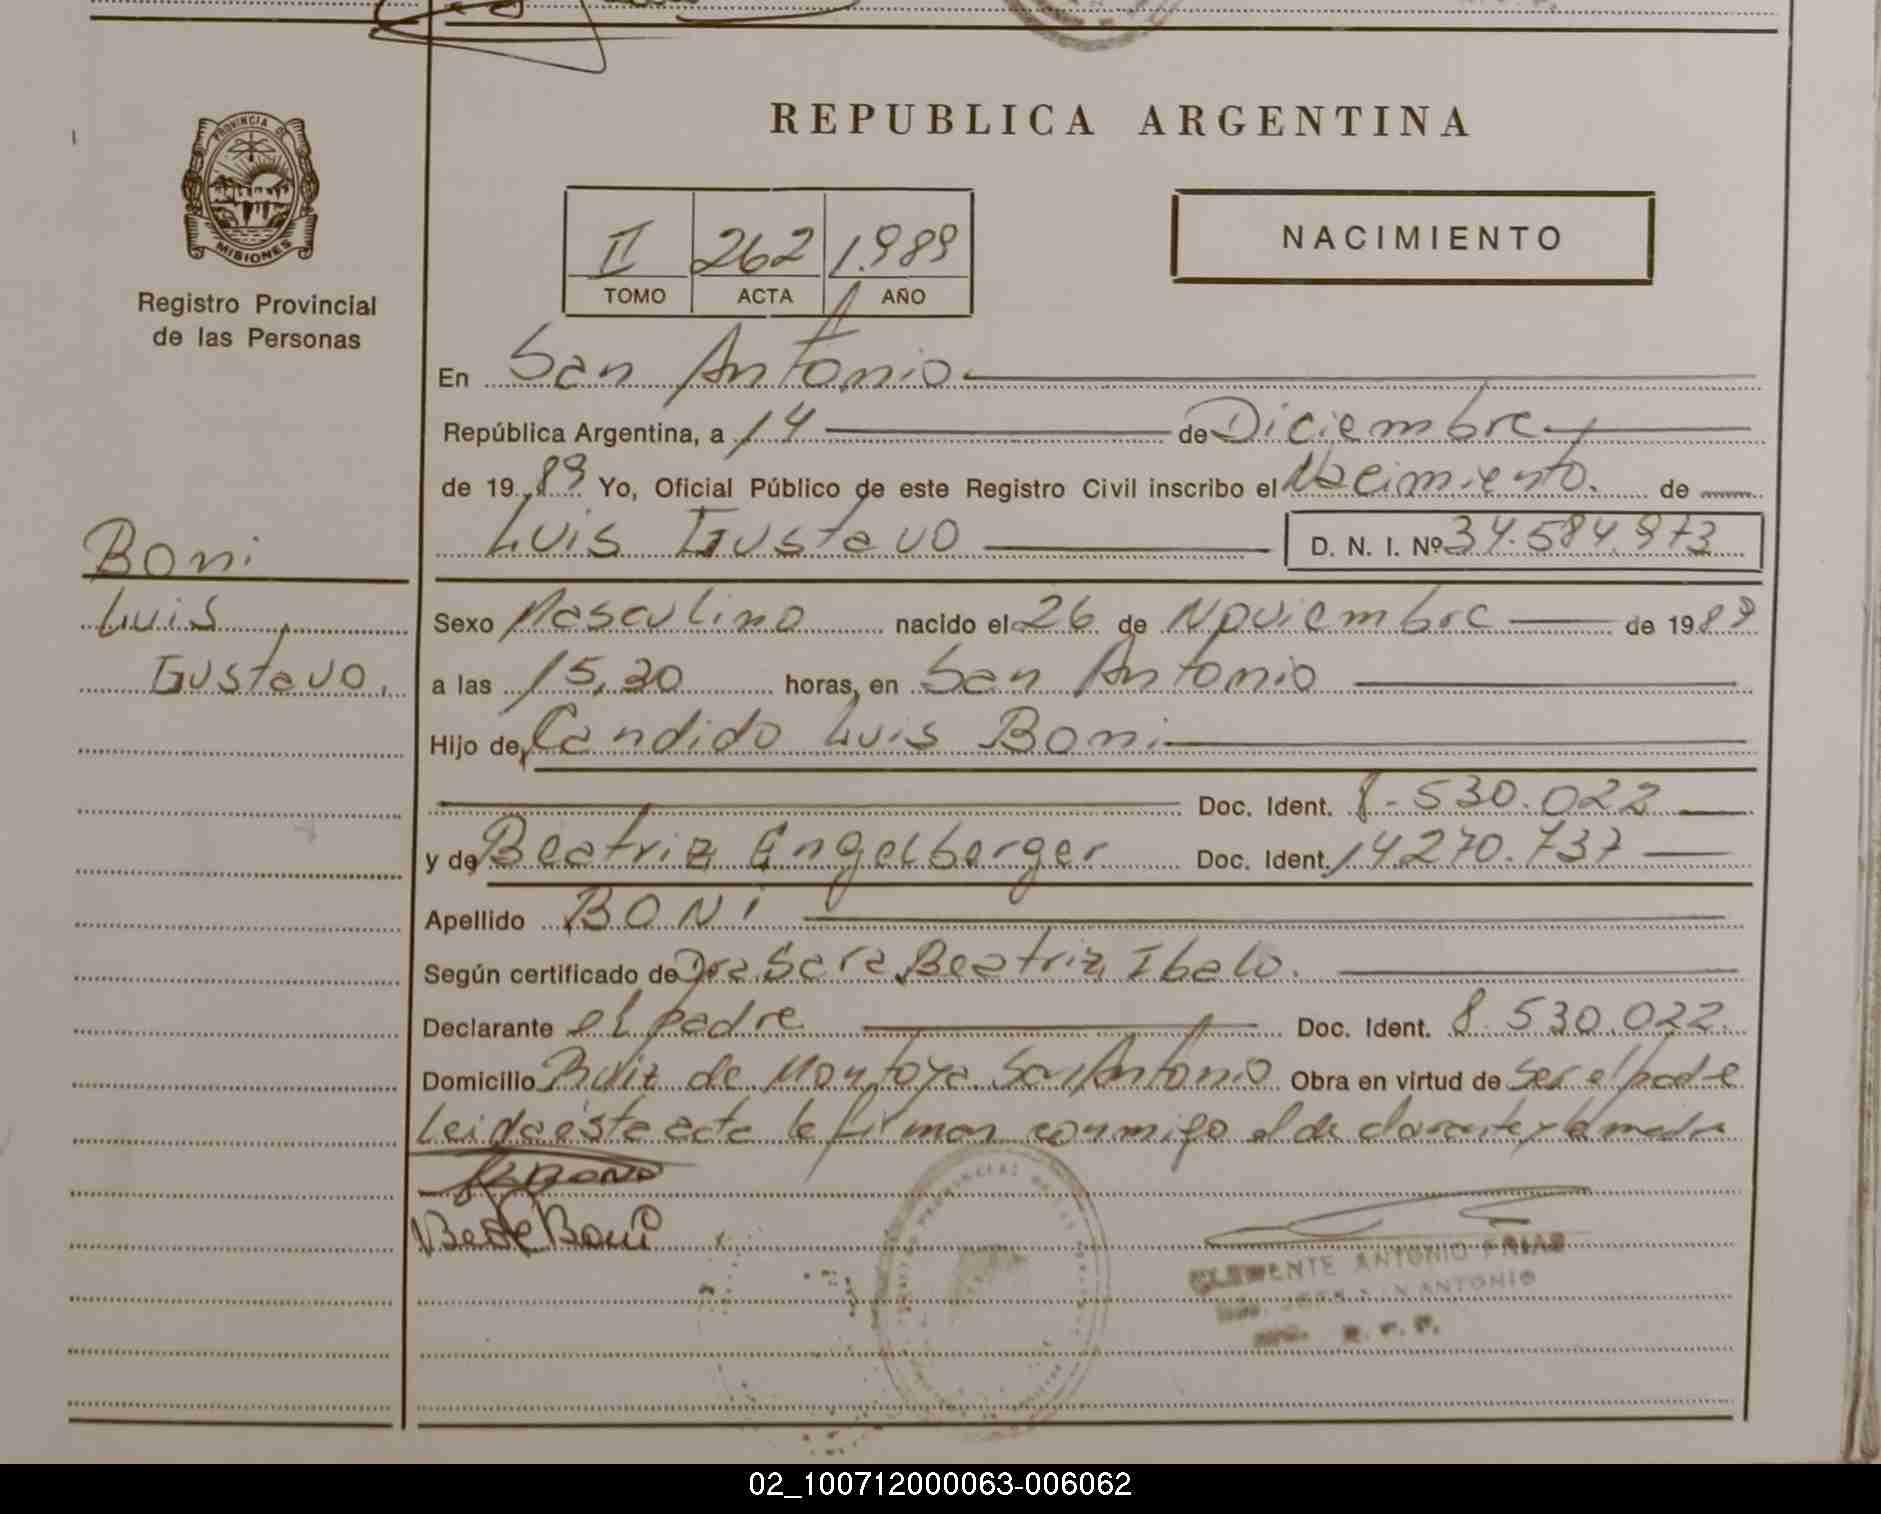 REPUBLICA ARGENTINA
PROVINCIA DE
MISIONES
Registro Provincial
de las Personas
NACIMIENTO
II 262 1.989
TOMO ACTA AÑO
En San Antonio
República Argentina, a 14 de Diciembre
de 19 89 Yo, Oficial Público de este Registro Civil inscribo el Nacimiento. de
Luis Gustavo D. N. I. Nº 34.584.973
Boni
Luis
Gustavo.
Sexo Masculino nacido el 26 de Noviembre de 19 89
a las 15,30 horas, en San Antonio
Hijo de Candido Luis Boni
Doc. Ident. 8.530.022
y de Beatriz Engelberger Doc. Ident. 14270.737
Apellido BONI
Según certificado de Dra Sara Beatriz Ibalo.
Declarante el padre Doc. Ident. 8.530.022.
Domicilio Ruiz de Montoya San Antonio Obra en virtud de ser el padre
Leida ésta acta la firman conmigo el declarante y la madre
Be de Boni
CLEMENTE ANTONIO FRIAS
SAN ANTONIO
R. P. P.
02_100712000063-006062